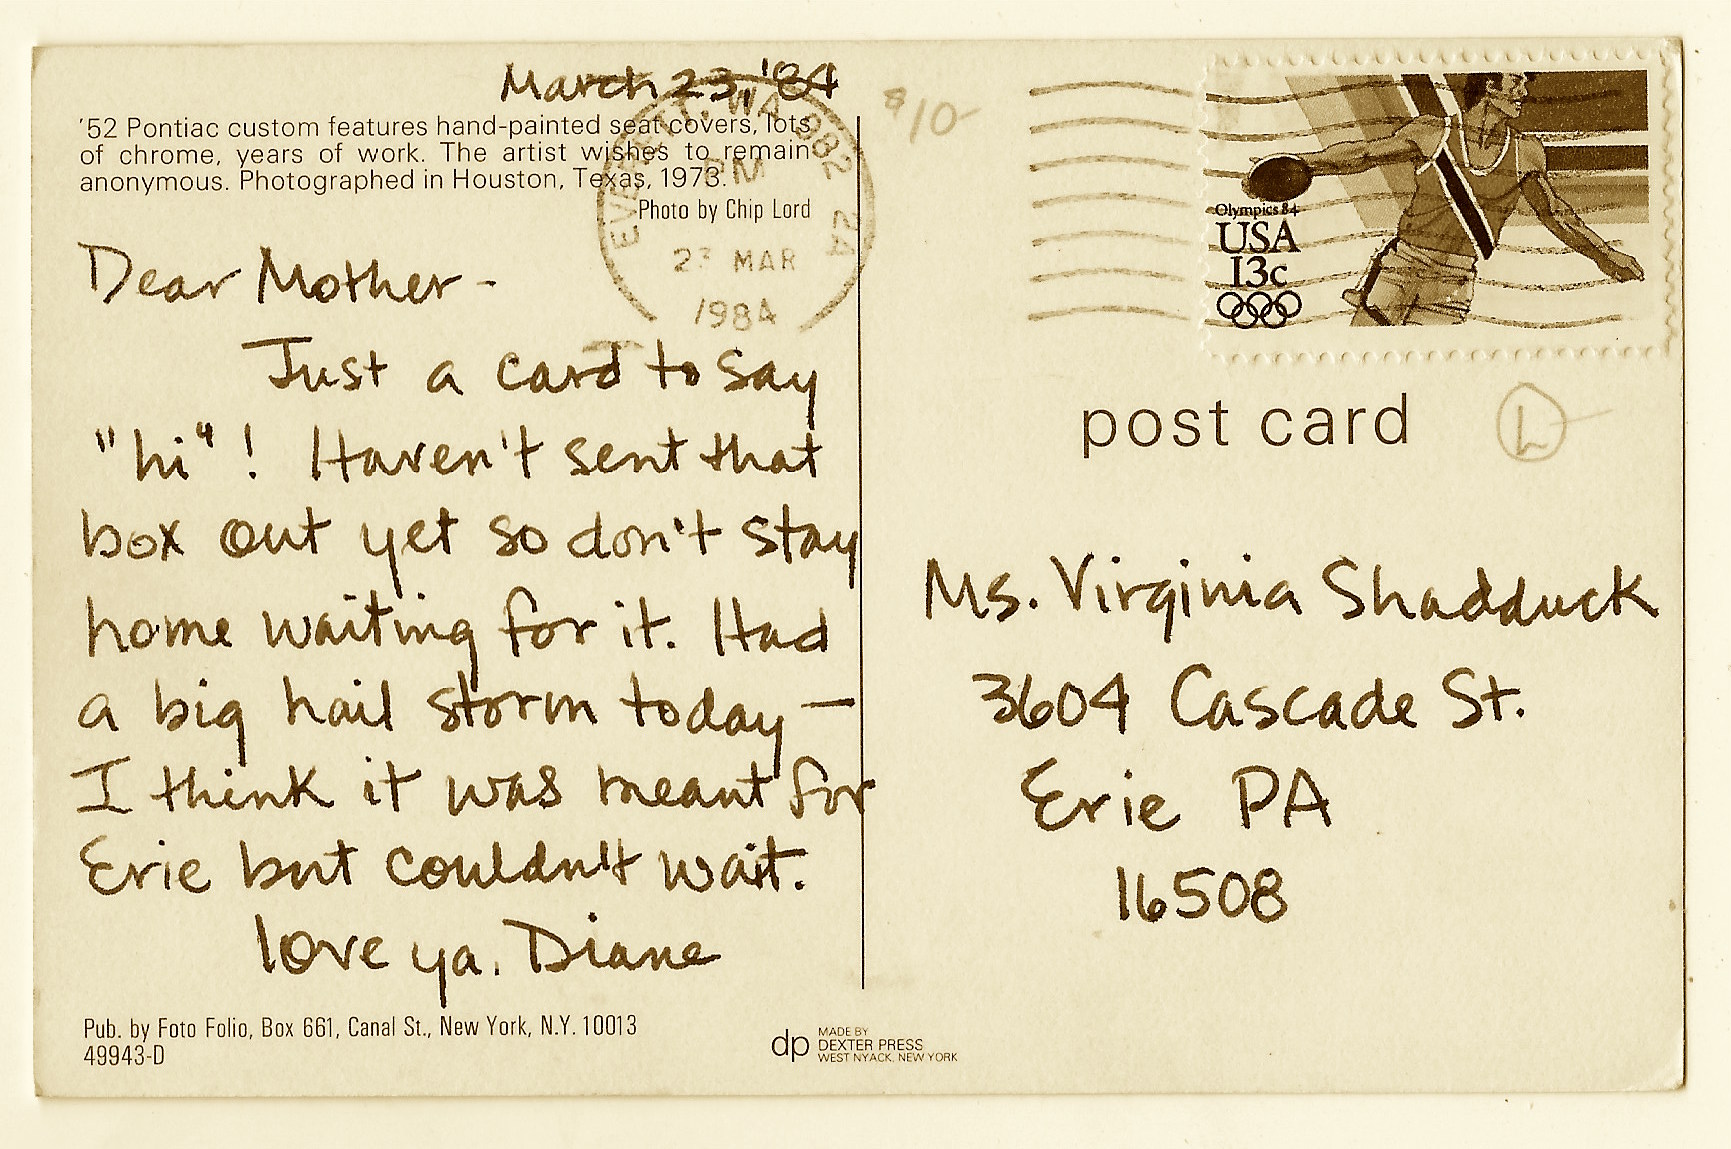 March 23, '84
'52 Pontiac custom features hand-painted seat covers, lots
of chrome, years of work. The artist wishes to remain
anonymous. Photographed in Houston, Texas, 1973.
Photo by Chip Lord
Dear Mother-
Just a card to say
"hi"! Haven't sent that
box out yet so don't stay
home waiting for it. Had
a big hail storm today —
I think it was meant for
Erie but couldn't wait.
love ya. Diane
Pub. by Foto Folio, Box 661, Canal St., New York, N.Y. 10013
49943-D
dp
MADE BY
DEXTER PRESS
WEST NYACK, NEW YORK
WA 982
PM
23 MAR
1984
$10-
Olympics 84
USA
13c
post card
L
Ms. Virginia Shadduck
3604 Cascade St.
Erie PA
16508